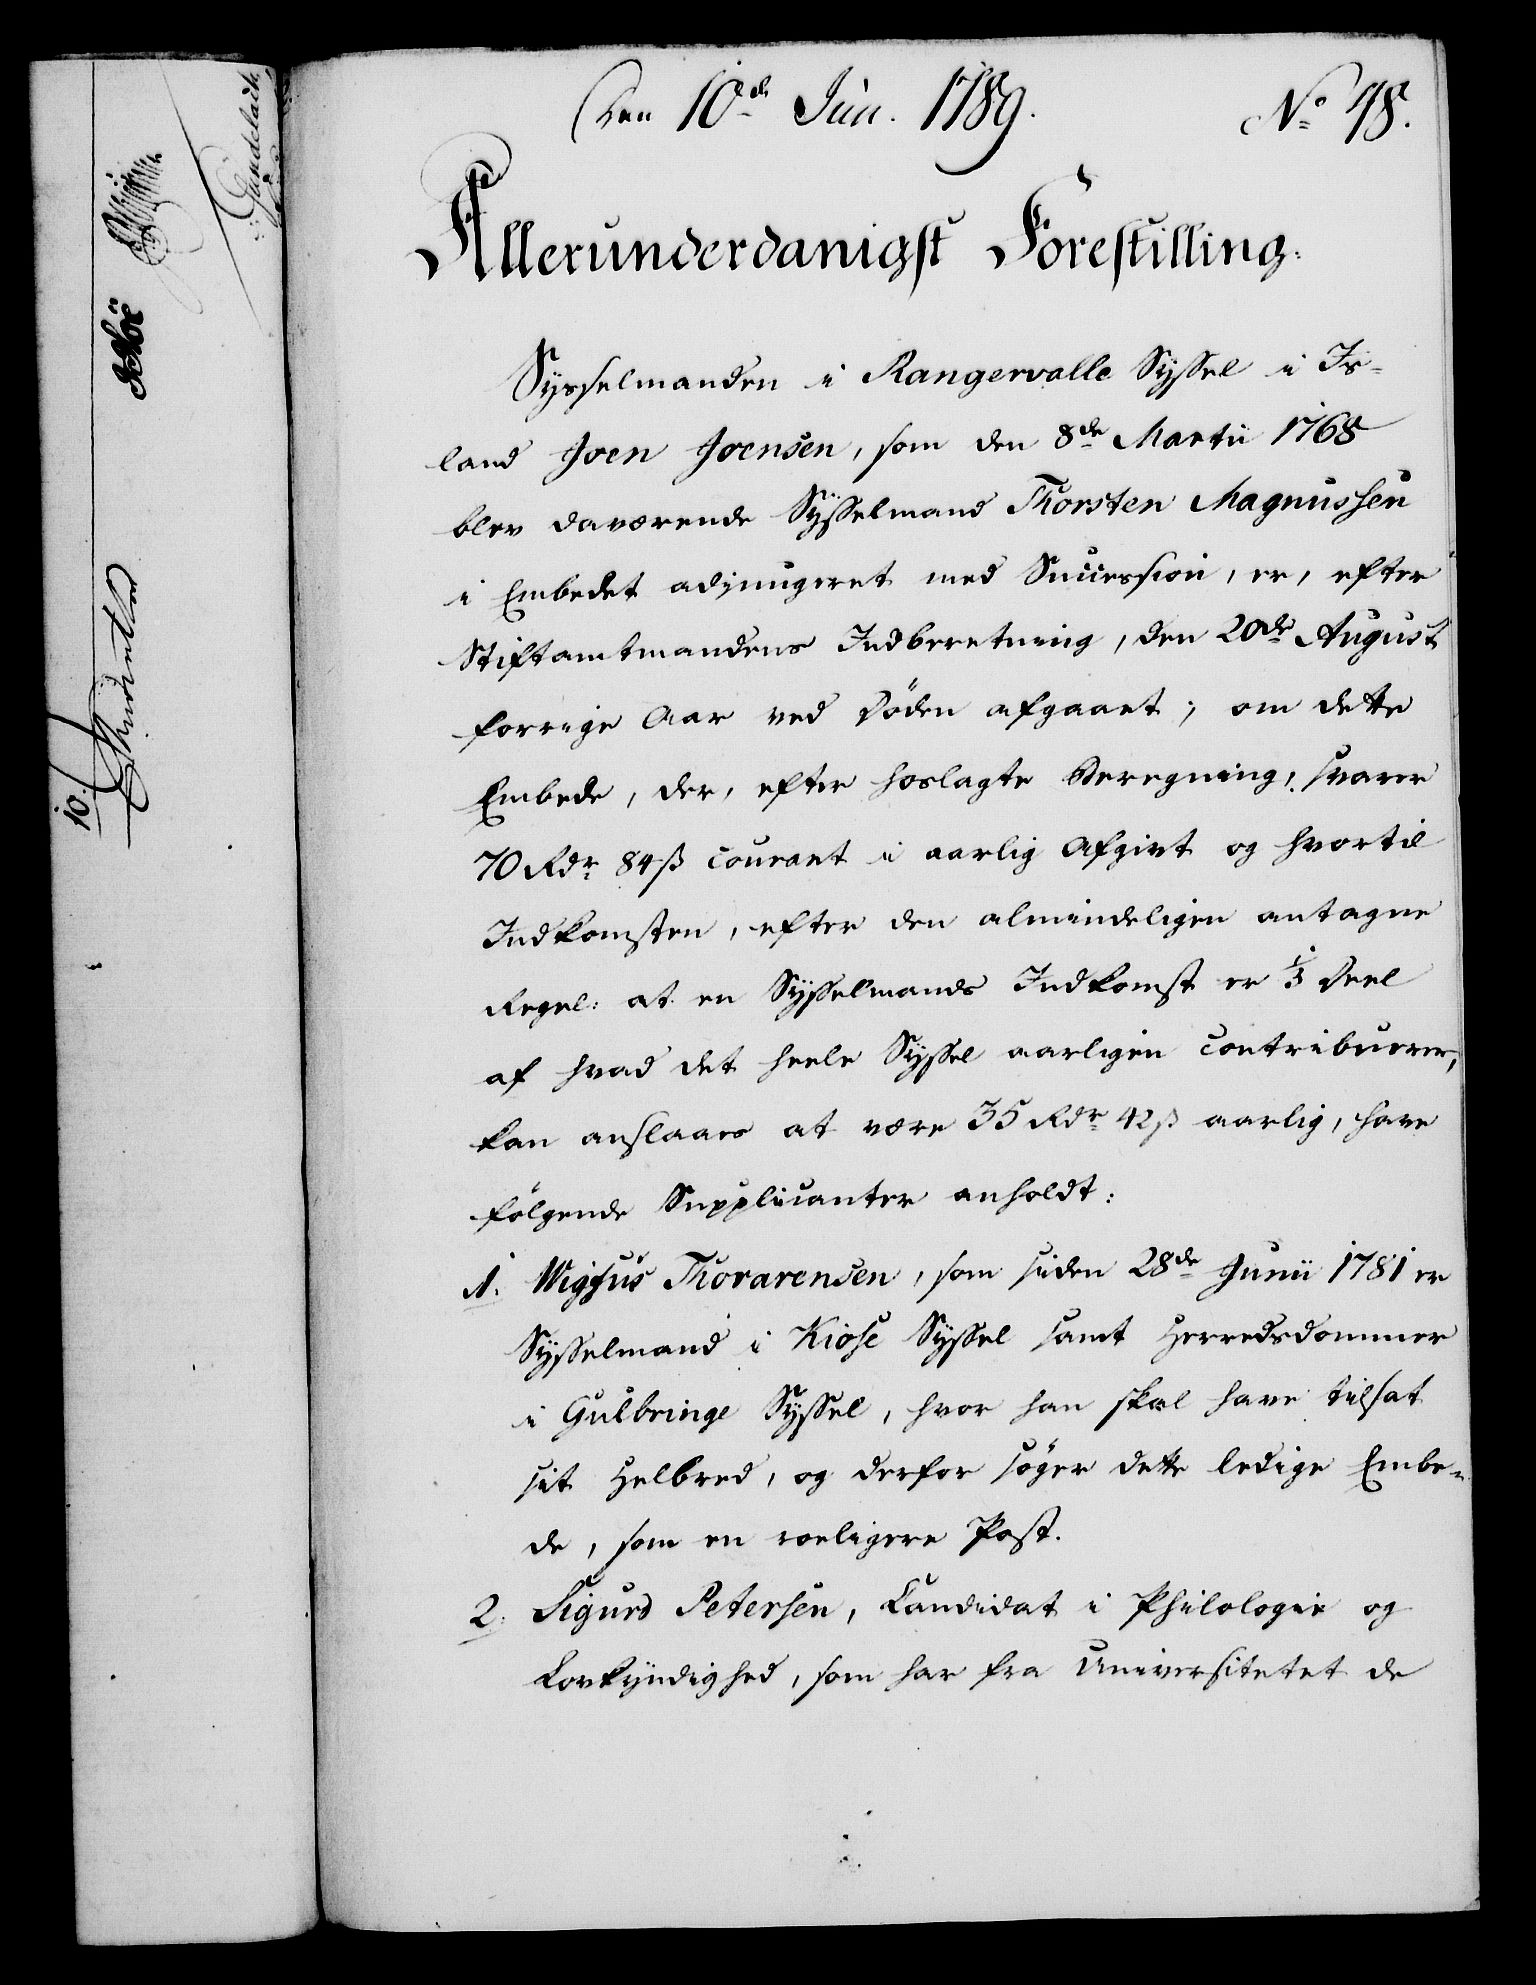 Den 10de Jun. 1789. No 48.
Allerunderdanigst Forestilling.
Sysselmanden i Rangervalle Syssel i Is-
land Joen Joensen, som den 8de Martii 1768
blev daværende Sysselmand Thorsten Magnussen
i Embedet adjungeret med Succession, er, efter
Stiftamtmandens Indberetning, den 20de August
forrige Aar ved Døden afgaaet; om dette
Embede, der, efter hoslagte Beregning, svarer
70 Rdr 84 ß courant i aarlig Afgivt og hvortil
Indkomsten, efter den almindeligen antagne
Regel: at en Sysselmands Indkomst er 1/3 Deel
af hvad det heele Syssel aarligen contribuerer,
kan anslaaes at være 35 Rdr 42 ß aarlig, have
følgende Supplicanter anholdt:
1. Wigfus Thorarensen, som siden 28de Junii 1781 er
Sysselmand i Kiose Syssel samt Herredsdommer
i Gulbringe Syssel, hvor han skal have tilsat
sit Helbred, og derfor søger dette ledige Embe-
de, som en roeligere Post.
2. Sigurd Petersen, Candidat i Philologie og
Lovkyndighed, som har fra Universitetet de
10.
Gundelach